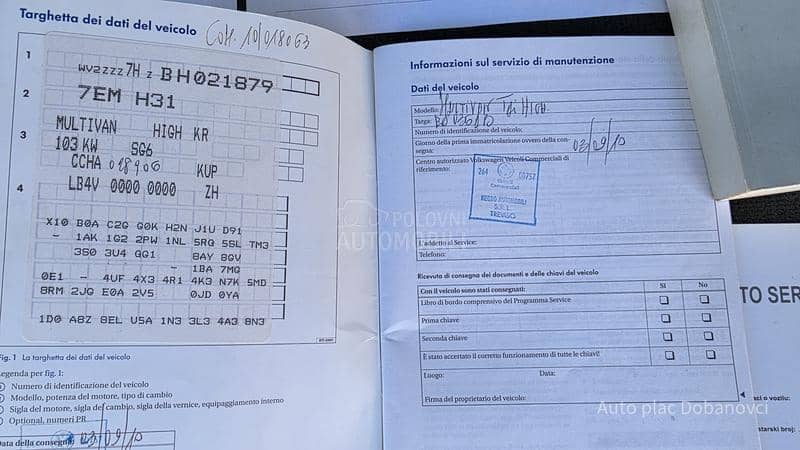 Targhetta dei dati del veicolo
1
WV2ZZZ7H Z BH021879
2
7EM H31
3
MULTIVAN HIGH KR
103 KW SG6
CCHA 018906 KUP
4
LB4V 0000 0000 ZH
X10 B0A C2G G0K H2N J1U D91
- 1AK 1G2 2PW 1NL 5RQ 5SL TM3
3S0 3U4 GG1 8AY 8GV
- 1BA 7MG
0E1 - 4UF 4X3 4R1 4K3 N7K 5MD
8RM 2JG E0A 2V5 0JD 0YA
1D0 A8Z 8EL U5A 1N3 3L3 4A3 8N3
Fig. 1 La targhetta dei dati del veicolo
Legenda per fig. 1:
Numero di identificazione del veicolo
Modello, potenza del motore, tipo di cambio
Sigla del motore, sigla del cambio, sigla della vernice, equipaggiamento interno
Optional, numeri PR
Data della consegna 03/09/10
Informazioni sul servizio di manutenzione
Dati del veicolo
Modello: MULTIVAN TDI HIGH
Targa:
Numero di identificazione del veicolo:
Giorno della prima immatricolazione ovvero della consegna: 03/09/10
Centro autorizzato Volkswagen Veicoli Commerciali di
riferimento:
264 00757
TREVISO
L'addetto al Service:
Telefono:
Ricevuta di consegna dei documenti e delle chiavi del veicolo
Con il veicolo sono stati consegnati: Sì No
Libro di bordo comprensivo del Programma Service
Prima chiave
Seconda chiave
È stato accertato il corretto funzionamento di tutte le chiavi!
Luogo: Data:
Firma del proprietario del veicolo:
TO SER
POLOVNI
AUTOMOBILI
Auto plac Dobanovci